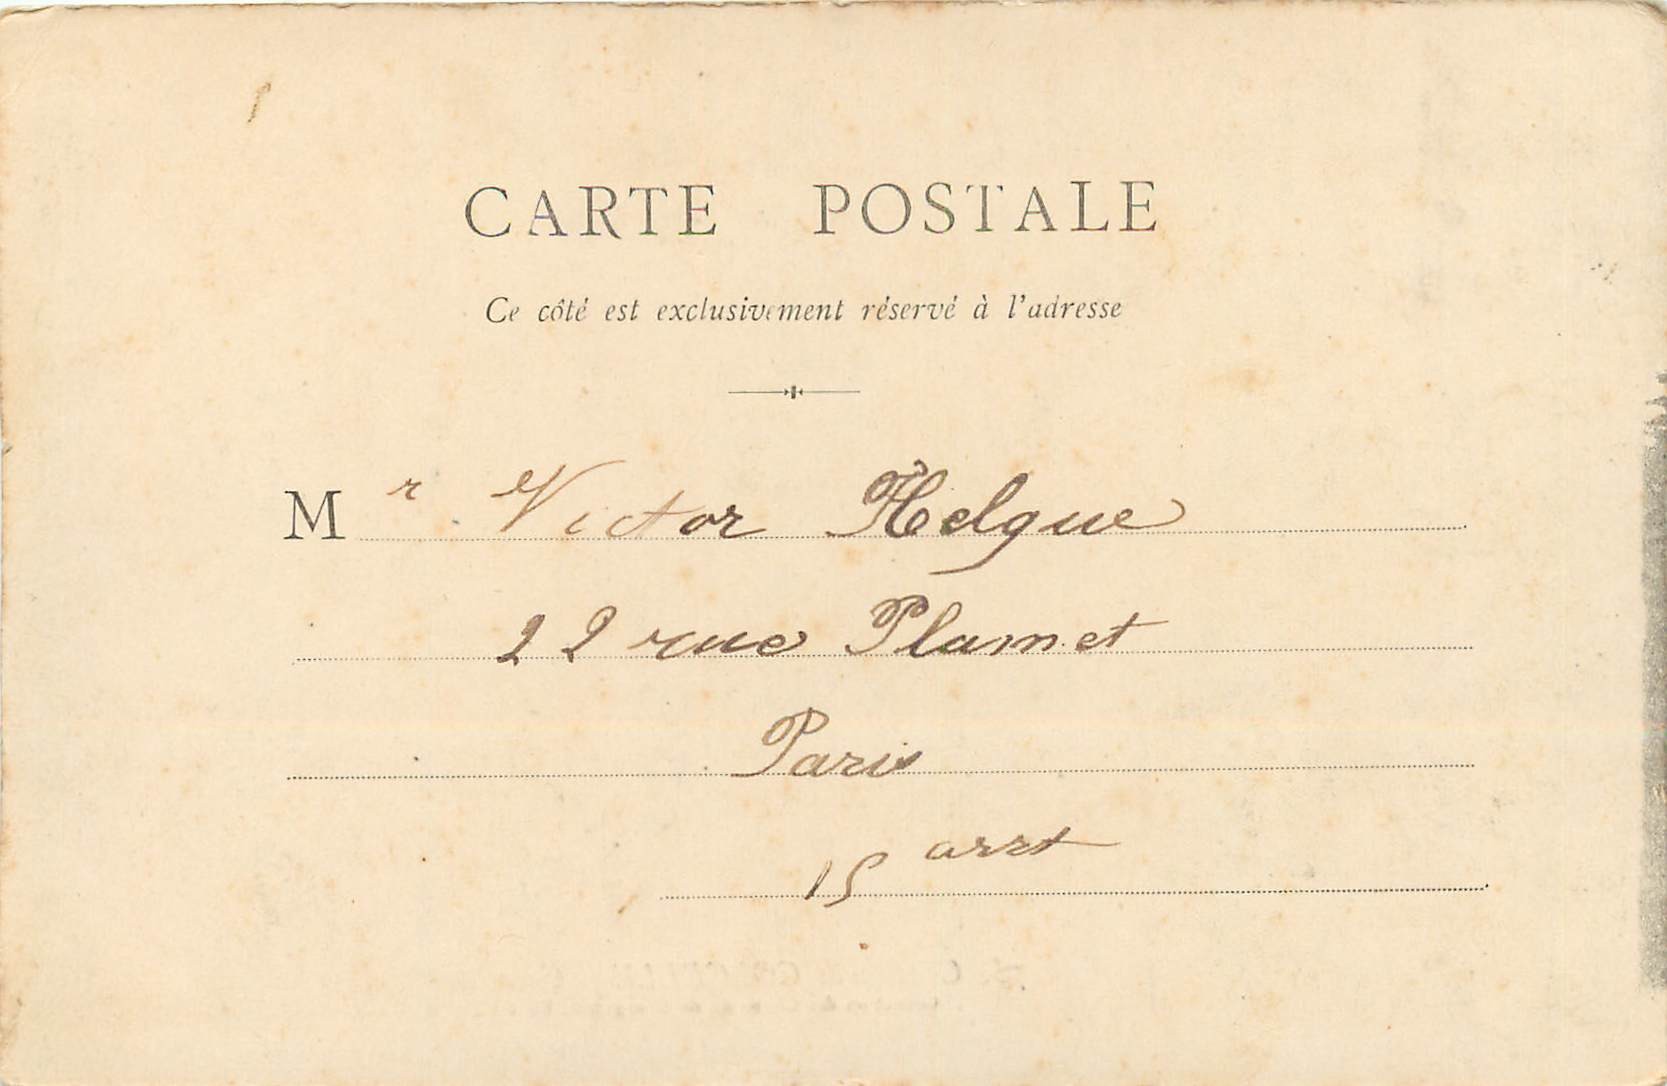 CARTE POSTALE
Ce côté est exclusivement réservé à l'adresse
Mr Victor Helgue
22 rue Plamet
Paris
15 arrt